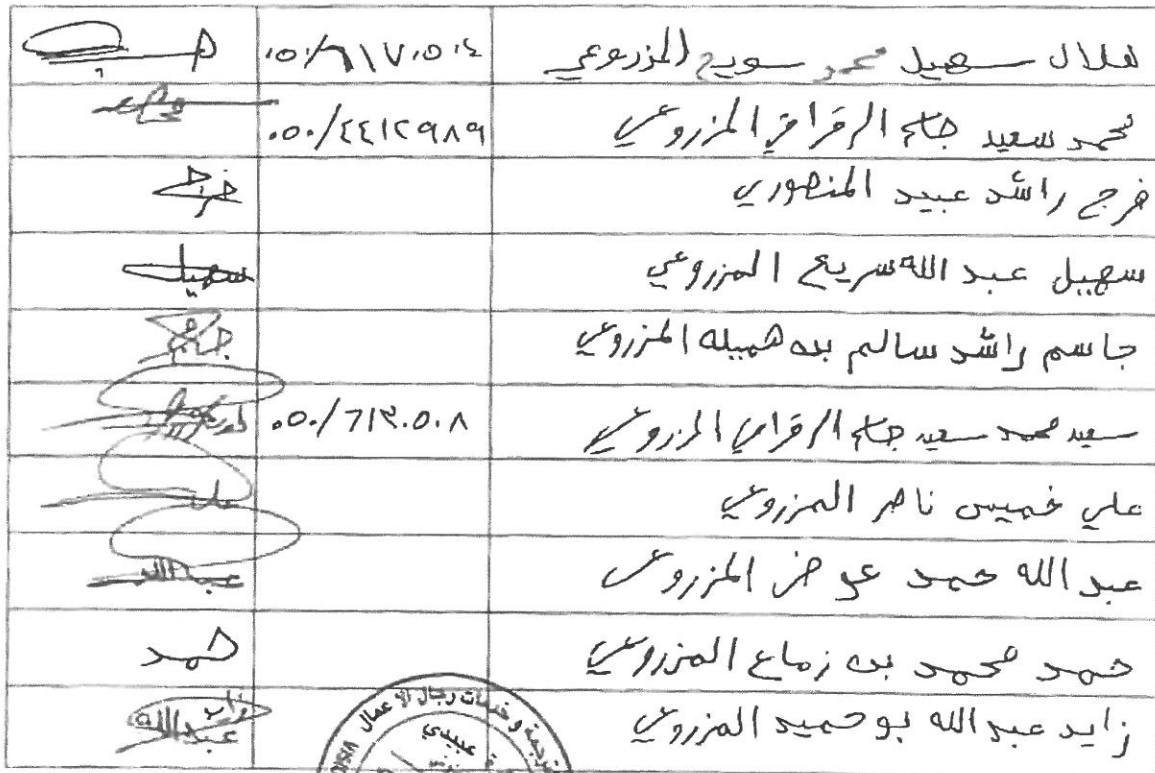 هلال سهيل محمد سويح المزروعي ٠٥٠/٦١٧٠٥٠٤
محمد سعيد جابر الرقراقي المزروعي ٠٥٠/٤٤١٢٩٨٩
فرج راشد عبيد المنصوري فرج
سهيل عبد الله سريع المزروعي سهيل
جاسم راشد سالم بن هميله المزروعي جاسم
سعيد محمد سعيد جابر الرقراقي المزروعي ٠٥٠/٦١٣٠٥٠٨
علي خميس ناصر المزروعي علي
عبد الله حمد عوض المزروعي عبدالله
حمد محمد بن زماع المزروعي حمد
زايد عبد الله بو حميد المزروعي زايد عبدالله
ترجمة و خدمات رجال الاعمال
عبيدي